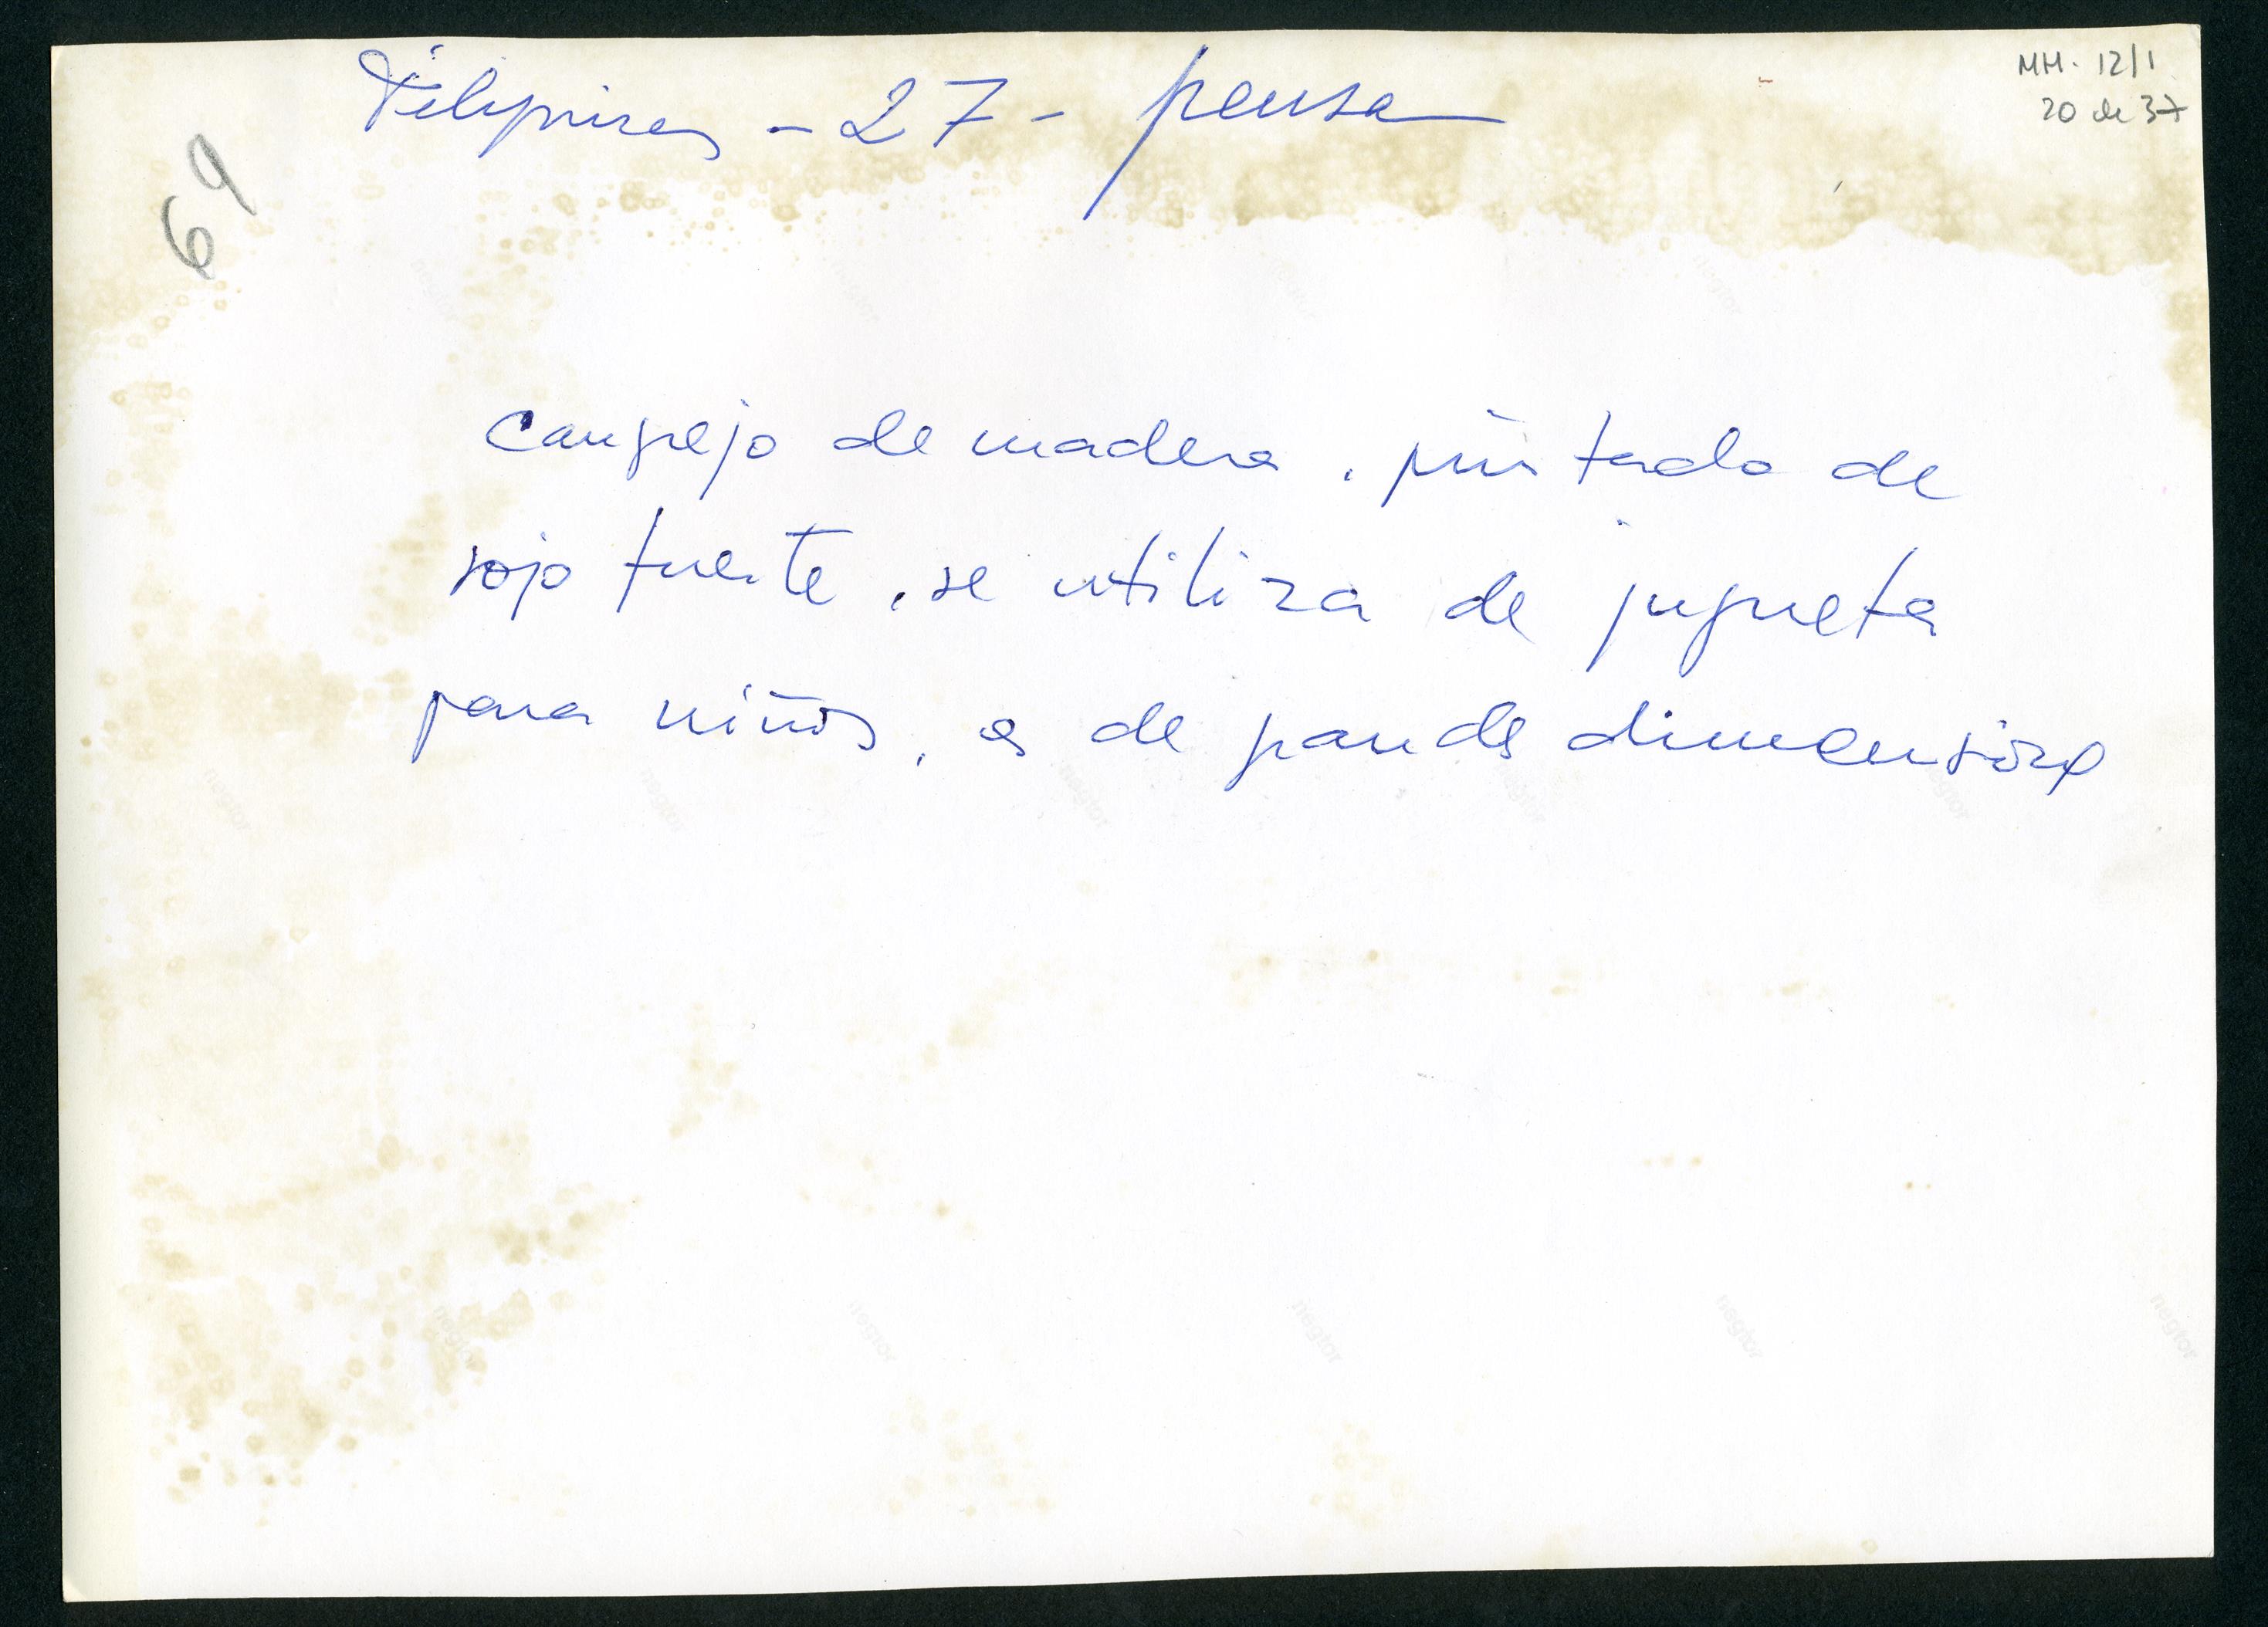 MM. 12/1
20 de 37
Filipinas - 27 - prensa
69
Cangrejo de madera. pintado de
rojo fuerte. se utiliza de jugueta
para niños. es de grande dimensione